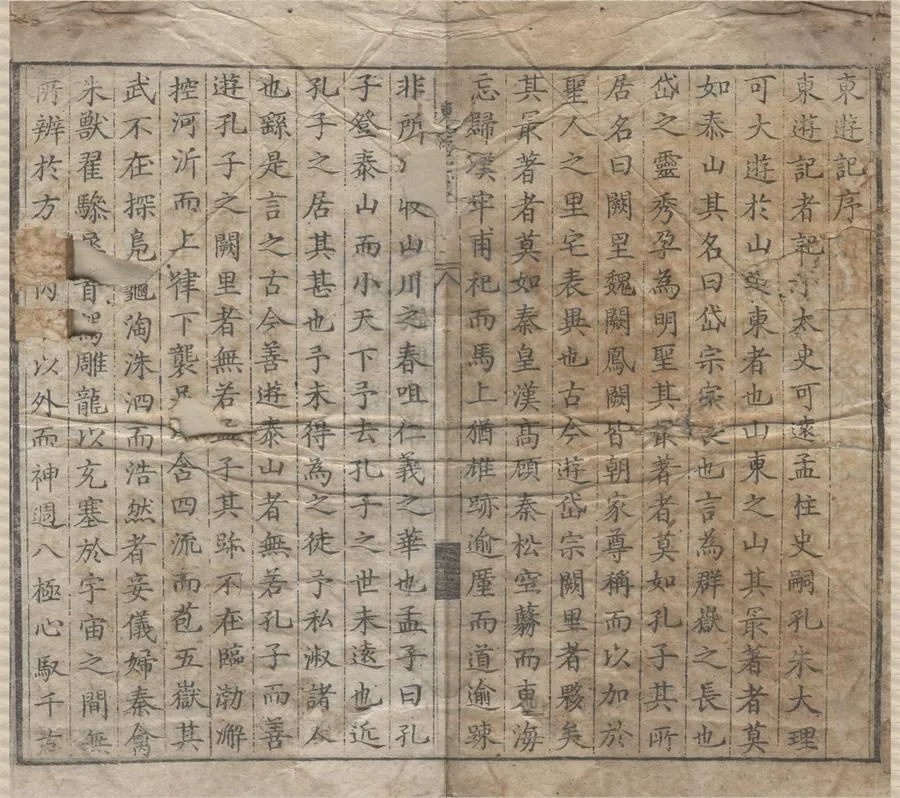 東遊記序
東遊記者記 太史可遠孟柱史嗣孔朱大理
可大遊於山 東者也山東之山其最著者莫
如泰山其名曰岱宗宗長也言為群嶽之長也
岱之靈秀孕為明聖其最著者莫如孔子其所
居名曰闕里魏闕鳳闕皆朝家尊稱而以加於
聖人之里宅表異也古今遊岱宗闕里者夥矣
其最著者莫如秦皇漢高顧秦松空蘙而東海
忘歸漢牢甫祀而馬上猶雄跡逾壓而道逾踈
非所 收山川之春咀仁義之華也孟子曰孔
子登泰山而小天下予去孔子之世未遠也近
孔子之居其甚也予未得為之徒予私淑諸人
也繇是言之古今善遊泰山者無若孔子而善
遊孔子之闕里者無若孟子其跡不在臨渤澥
控河沂而上律下襲 含四流而苞五嶽其
武不在探鳧 淘洙泗而浩然者妾儀婦秦禽
朱獸翟驂 首 雕龍以充塞於宇宙之間無
所辨於方 內 以外而神週八極心馭千